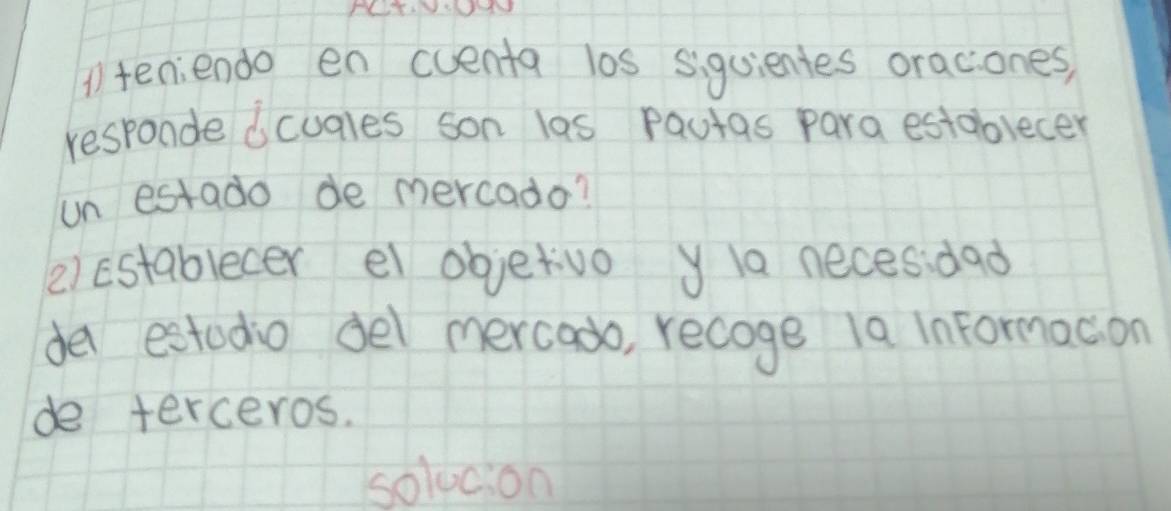 1) teniendo en cuenta los siguientes oraciones,
responde ¿cuales son las pautas para establecer
un estado de mercado?
2) Establecer el objetivo y la necesidad
del estudio del mercado, recoge la informacion
de terceros.
solucion